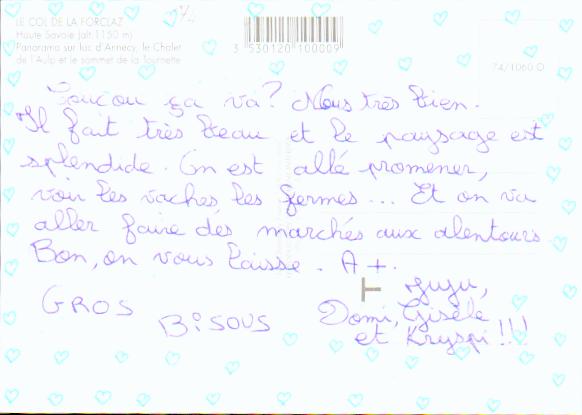 LE COL DE LA FORCLAZ
Haute Savoie (alt. 1150 m)
Panorama sur lac d'Annecy, le Chalet
de l'Aulp et le sommet de la Tournette
3 530120 100009
74/1060 O
Coucou ça va? Nous très bien.
Il fait très beau et le paysage est
splendide. On est allé promener,
voir les vaches les fermes... Et on va
aller faire des marchés aux alentours
Bon, on vous laisse. A +.
GROS BiSOUS
Juju,
Domi, Gisèle
et Kryspi!!!